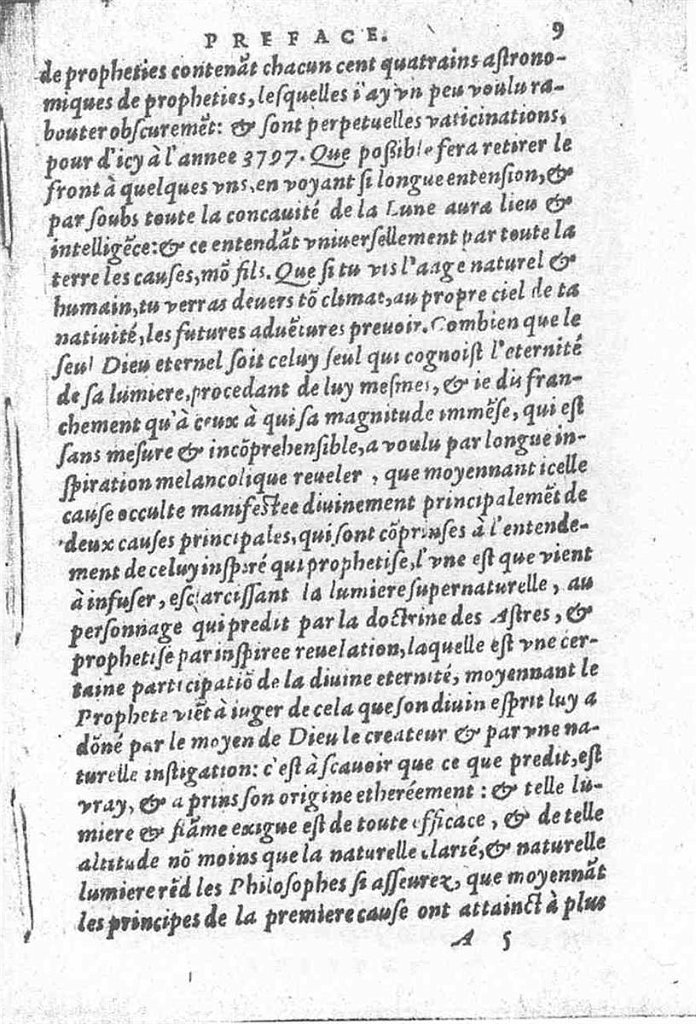 PREFACE. 9
de propheties contenãt chacun cent quatrains aſtrono-
miques de propheties, leſquelles i'ay vn peu voulu ra-
bouter obſcuremẽt: & ſont perpetuelles vaticinations,
pour d'icy à l'annee 3797. Que poßible fera retirer le
front à quelques vns, en voyant ſi longue entenſion, &
par ſoubs toute la concauité de la Lune aura lieu &
intelligẽce: & ce entendãt vniuerſellement par toute la
terre les cauſes, mõ fils. Que ſi tu vis l'aage naturel &
humain, tu verras deuers tõ climat, au propre ciel de ta
natiuité, les futures aduẽtures preuoir. Combien que le
ſeul Dieu eternel ſoit celuy ſeul qui cognoiſt l'eternité
de ſa lumiere, procedant de luy meſmes, & ie dis fran-
chement qu'à ceux à qui ſa magnitude immẽſe, qui eſt
ſans meſure & incõprehenſible, a voulu par longue in-
ſpiration melancolique reueler, que moyennant icelle
cauſe occulte manifeſtee diuinement principalemẽt de
deux cauſes principales, qui ſont cõprinſes à l'entende-
ment de celuy inſpiré qui prophetiſe, l'vne eſt que vient
à infuſer, eſclarciſſant la lumiere ſupernaturelle, au
perſonnage qui predit par la doctrine des Aſtres, &
prophetiſe par inſpiree reuelation, laquelle eſt vne cer-
taine participatiõ de la diuine eternité, moyennant le
Prophete viẽt à iuger de cela que ſon diuin eſprit luy a
dõné par le moyen de Dieu le createur & par vne na-
turelle inſtigation: c'eſt à ſcauoir que ce que predit, eſt
vray, & a prins ſon origine etheréement: & telle lu-
miere & flãme exigue eſt de toute efficace, & de telle
altitude nõ moins que la naturelle clarté, & naturelle
lumiere rẽd les Philoſophes ſi aſſeurez, que moyennãt
les principes de la premiere cauſe ont attainct à plus
A 5